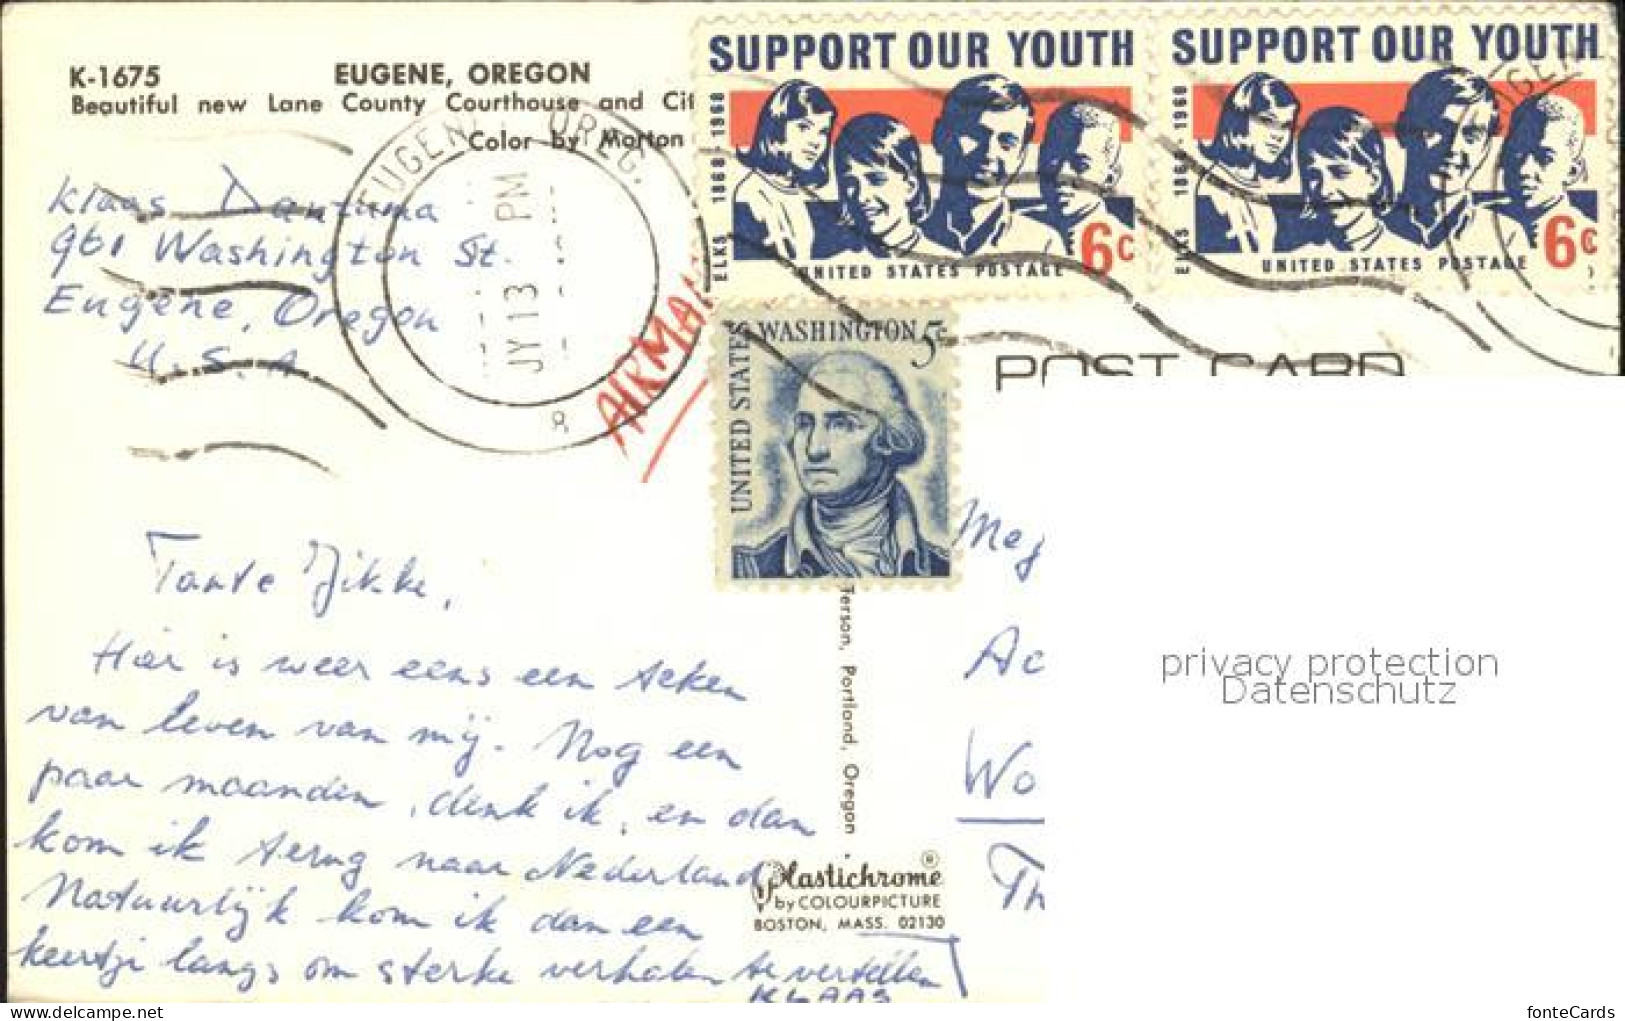 K-1675 EUGENE, OREGON
Beautiful new Lane County Courthouse and Cit
Color by Morton
Klaas Dantuma
961 Washington St.
Eugene, Oregon
U.S.A
EUGENE OREG.
JY 13 PM
AIRMAI
SUPPORT OUR YOUTH
ELKS 1868-1968
6c
UNITED STATES POSTAGE
SUPPORT OUR YOUTH
ELKS 1868-1968
6c
UNITED STATES POSTAGE
WASHINGTON 5c
UNITED STATES
POST CARD
Tante Jikke,
Hier is weer eens een teken
van leven van mij. Nog een
paar maanden, denk ik, en dan
kom ik terug naar Nederland
Natuurlijk kom ik dan een
keertje langs om sterke verhalen te vertellen
KLAAS
terson, Portland, Oregon
Plastichrome ®
by COLOURPICTURE
BOSTON, MASS. 02130
Mej
Ac
Wo
Th
privacy protection
Datenschutz
www.delcampe.net
fonteCards